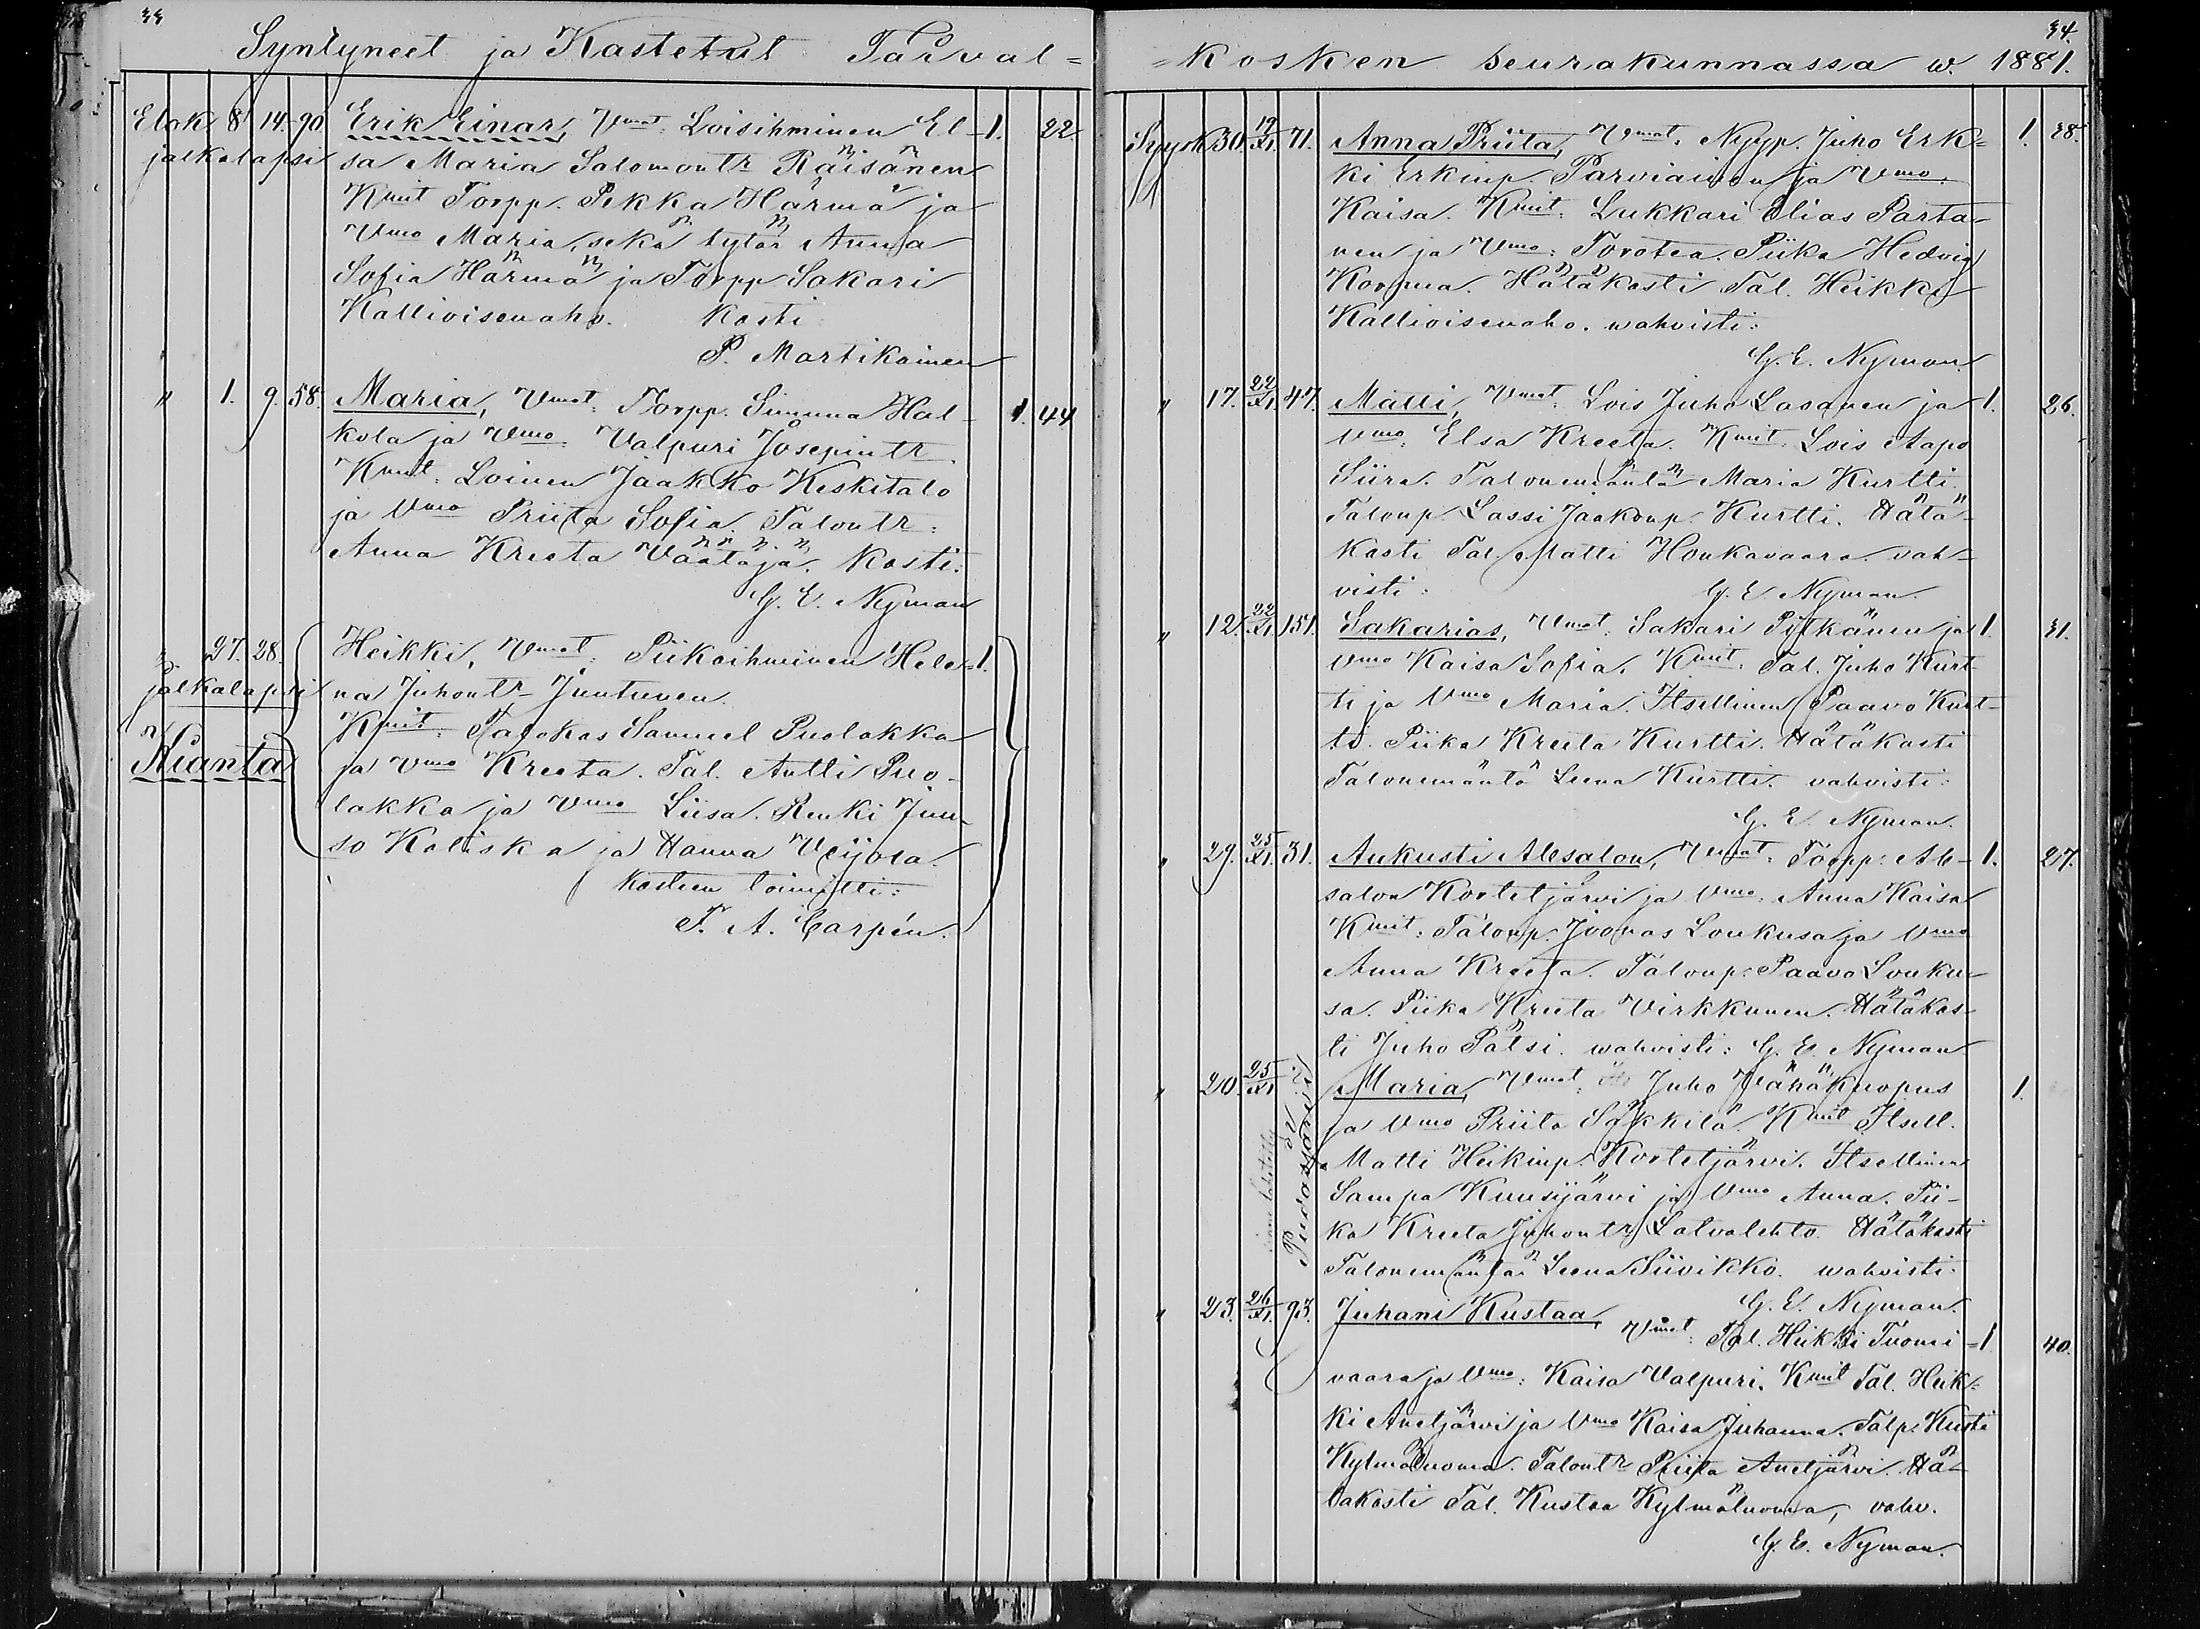 33
Syntyneet ja Kastetut Taival=
Elok 8 14. 90. Erik Einar, Vmat: Loisihminen El- 1. 22.
jalkalapsi sa Maria Salomontr Räisänen
Kmit Torpp. Pekka Härmä ja
Vmo Maria, sekä tytär Anna
Sofia Härmä ja Torpp Sakari
Kallioisenaho. Kasti
P. Martikainen
" 1. 9. 58. Maria, Vmat: Torpp. Simuna Hal- 1. 44
kola ja Vmo: Valpuri Josepintr.
Kmit: Loinen Jaakko Keskitalo
ja Vmo Priita Sofia. Talontr:
Anna Kreeta Väätäjä. Kasti:
G. E. Nyman
". 27. 28. Heikki, Vmat: Piikaihminen Hele- 1.
jalkalapsi na Juhontr Juntunen.
Kmit: Talokas Samuel Puolakka
Kianta ja Vmo Kreeta. Tal. Antti Puo-
lakka ja Vmo Liisa. Renki Juu-
so Kaliska ja Hanna Veijola.
kasteen toimitti:
T. A. Carpén.
34.
=kosken seurakunnassa w. 1881.
Syysk 30. 19/XI. 71. Anna Priita, Vmat: Nypp. Juho Erk= 1. 38.
ki Erkinp. Parviainen ja Vmo.
Kaisa. Kmit: Lukkari Elias Parta-
nen ja Vmo: Torotea. Piika Hedvig
Koorma. Hätäkasti Tal. Heikki
Kallioisenaho. wahvisti:
G. E. Nyman
" 17. 22/XI. 47. Matti, Vmat: Lois Juho Lasanen ja 1. 26.
Vmo: Elsa Kreeta. Kmit: Lois Aapo
Siira. Talonemäntä Maria Kurtti.
Talonp. Lassi Jaakonp. Kurtti. Hätä-
kasti Tal. Matti Honkavaara. vah-
visti: G. E. Nyman.
" 12. 22/XI. 151. Sakarias, Vmat: Sakari Pytkänen ja 1. 31.
Vmo Kaisa Sofia. Kmit: Tal. Juho Kurt-
ti ja Vmo Maria. Itsellinen Paavo Kurt-
ti. Piika Kreeta Kurtti. Hätäkasti
Talonemäntä Leena Kurtti. vahvisti:
G. E. Nyman.
" 29. 25/XI. 31. Aukusti Absalon, Vmat: Torpp: Ab- 1. 27.
salon Kortetjärvi ja Vmo: Anna Kaisa
Kmit: Talonp. Joonas Loukusa ja Vmo
Anna Kreeta. Talonp: Paavo Louku-
sa. Piika Kreeta Virkkunen. Hätäkas-
ti Juho Pätsi. wahvisti: G. E. Nyman.
" 20. 25/XI Pudasjärvi Maria, Vmat: Juho Jlähäkuopus 1.
ja Vmo Priita Säkkilä. Kmit Itsell.
Matti Heikinp. Kortetjärvi. Itsellinen
Sampa Kuusijärvi ja Vmo Anna. Pii-
ka Kreeta Juhontr Latvalehto. Hätäkasti
Talonemäntä Leena Siivikko. wahvisti:
G. E. Nyman.
" 23. 26/XI. 93. Juhani Kustaa, Vmat: Tal. Heikki Tuomi= 1 40.
vaara ja Vmo: Kaisa Valpuri. Kmit Tal. Heik=
ki Anetjärvi ja Vmo Kaisa Juhanna. Talp. Kusti
Kylmäluoma. Talontr Priita Anetjärvi. Hä-
täkasti Tal. Kustaa Kylmäluoma, vahv.
G. E. Nyman.